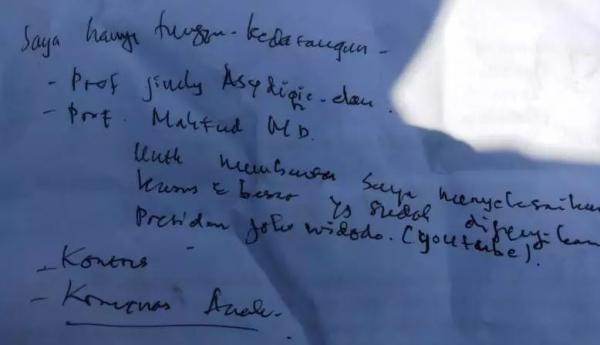 Saya hanya tunggu kedatangan -
- Prof Jimly Asydiqie dan
- Prof. Mahfud MD.
Untk membantu saya menyelesaikan
kasus2 besar yg sudah
Presiden joko widodo. (youtube).
- Kontras
- Komnas Anak.